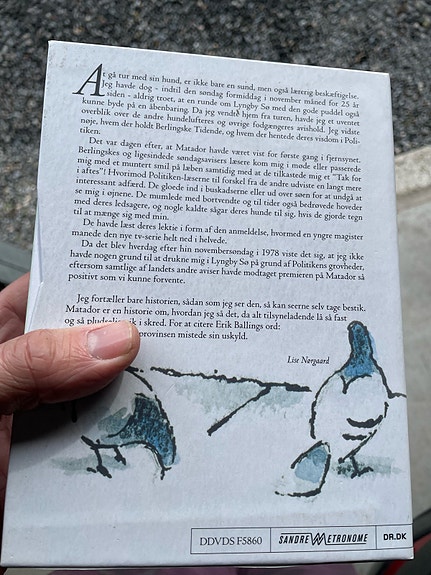 At gå tur med sin hund, er ikke bare en sund, men også lærerig beskæftigelse.
Jeg havde dog - indtil den søndag formiddag i november måned for 25 år
siden - aldrig troet, at en runde om Lyngby Sø med den gode puddel også
kunne byde på en åbenbaring. Da jeg vendte hjem fra turen, havde jeg et uventet
overblik over de andre hundelufteres og øvrige fodgængeres avishold. Jeg vidste
nøje, hvem der holdt Berlingske Tidende, og hvem der hentede deres visdom i Poli-
tiken.
Det var dagen efter, at Matador havde været vist for første gang i fjernsynet.
Berlingskes og ligesindede søndagsavisers læsere kom mig i møde eller passerede
mig med et muntert smil på læben samtidig med at de tilkastede mig et "Tak for
i aftes"! Hvorimod Politiken-læserne til forskel fra de andre udviste en langt mere
interessant adfærd. De gloede ind i buskadserne eller ud over søen for at undgå at
se mig i øjnene. De mumlede med bortvendte og til tider også bedrøvede hoveder
med deres ledsagere, og nogle kaldte sågar deres hunde til sig, hvis de gjorde tegn
til at mænge sig med min.
De havde læst deres lektie i form af den anmeldelse, hvormed en yngre magister
manede den nye tv-serie helt ned i helvede.
Da det blev hverdag efter hin novembersøndag i 1978 viste det sig, at jeg ikke
havde nogen grund til at drukne mig i Lyngby Sø på grund af Politikens grovheder,
eftersom samtlige af landets andre aviser havde modtaget premieren på Matador så
positivt som vi kunne forvente.
Jeg fortæller bare historien, sådan som jeg ser den, så kan seerne selv tage bestik.
Matador er en historie om, hvordan jeg så det, da alt tilsyneladende lå så fast
og så pludselig gik i skred. For at citere Erik Ballings ord:
provinsen mistede sin uskyld.
Lise Nørgaard
DDVDS F5860
SANDREW METRONOME
DR.DK